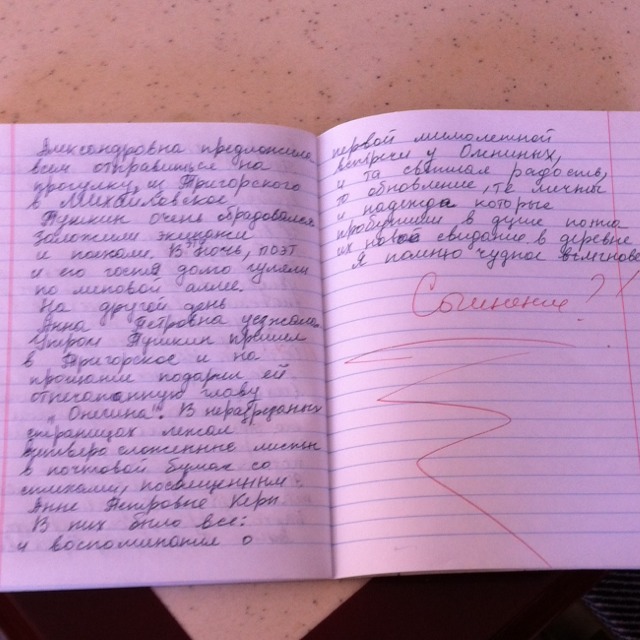 Александровна предложила
всем отправиться на
прогулку, из Тригорского
в Михайловское.
Пушкин очень обрадовался
Заложили экипажи
и поехали. В ночь, поэт
и его гостя долго гуляли
по липовой аллее.
На другой день
Анна Петровна уезжала.
Утром Пушкин пришел
в Тригорское и на
прощание подарил ей
отпечатанную главу
„Онегина". В неразрезанных
страницах лежал
четверо сложенные листы
в почтовой бумаг со
стихами, посвященными
Анне Петровне Керн
В них было все:
и воспоминание о
первой мимолетной
встречи у Олениных,
и та светлая радость,
то обновление, те
и надежда которые
пробудили в душе поэта
их новое свидание в деревне
Я помню чудное мгновение
Сочинение??